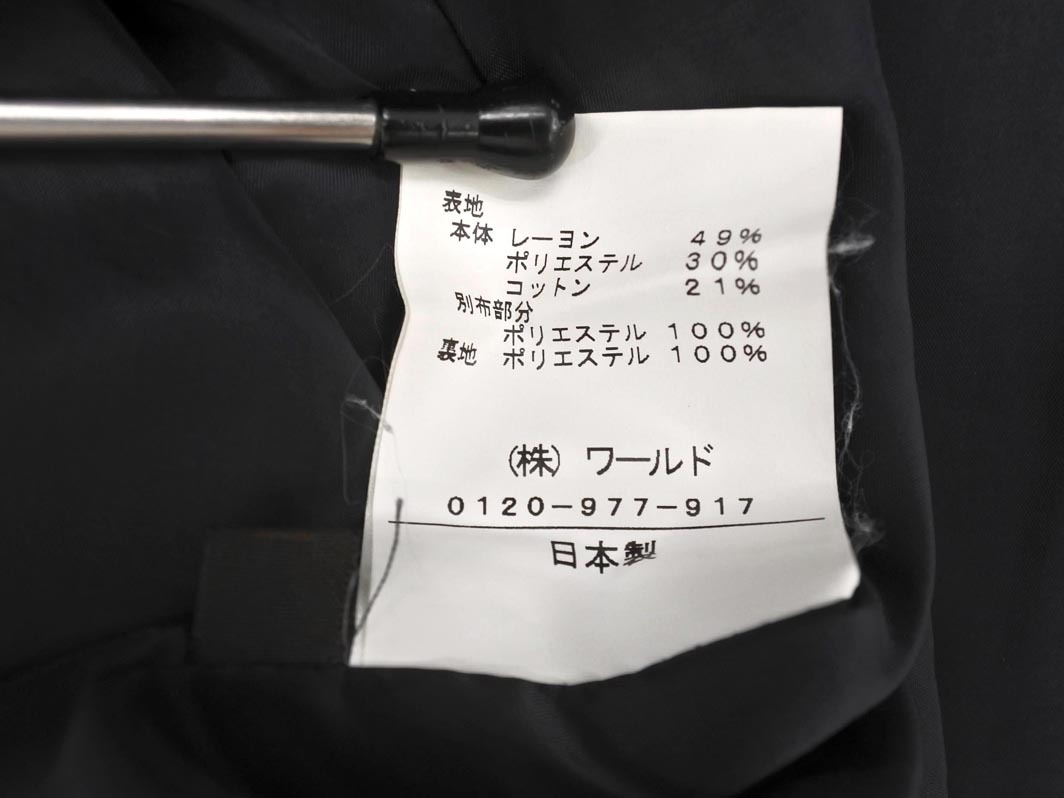 表地
本体 レーヨン 49%
ポリエステル 30%
コットン 21%
別布部分
ポリエステル 100%
裏地 ポリエステル 100%
(株) ワールド
0120-977-917
日本製